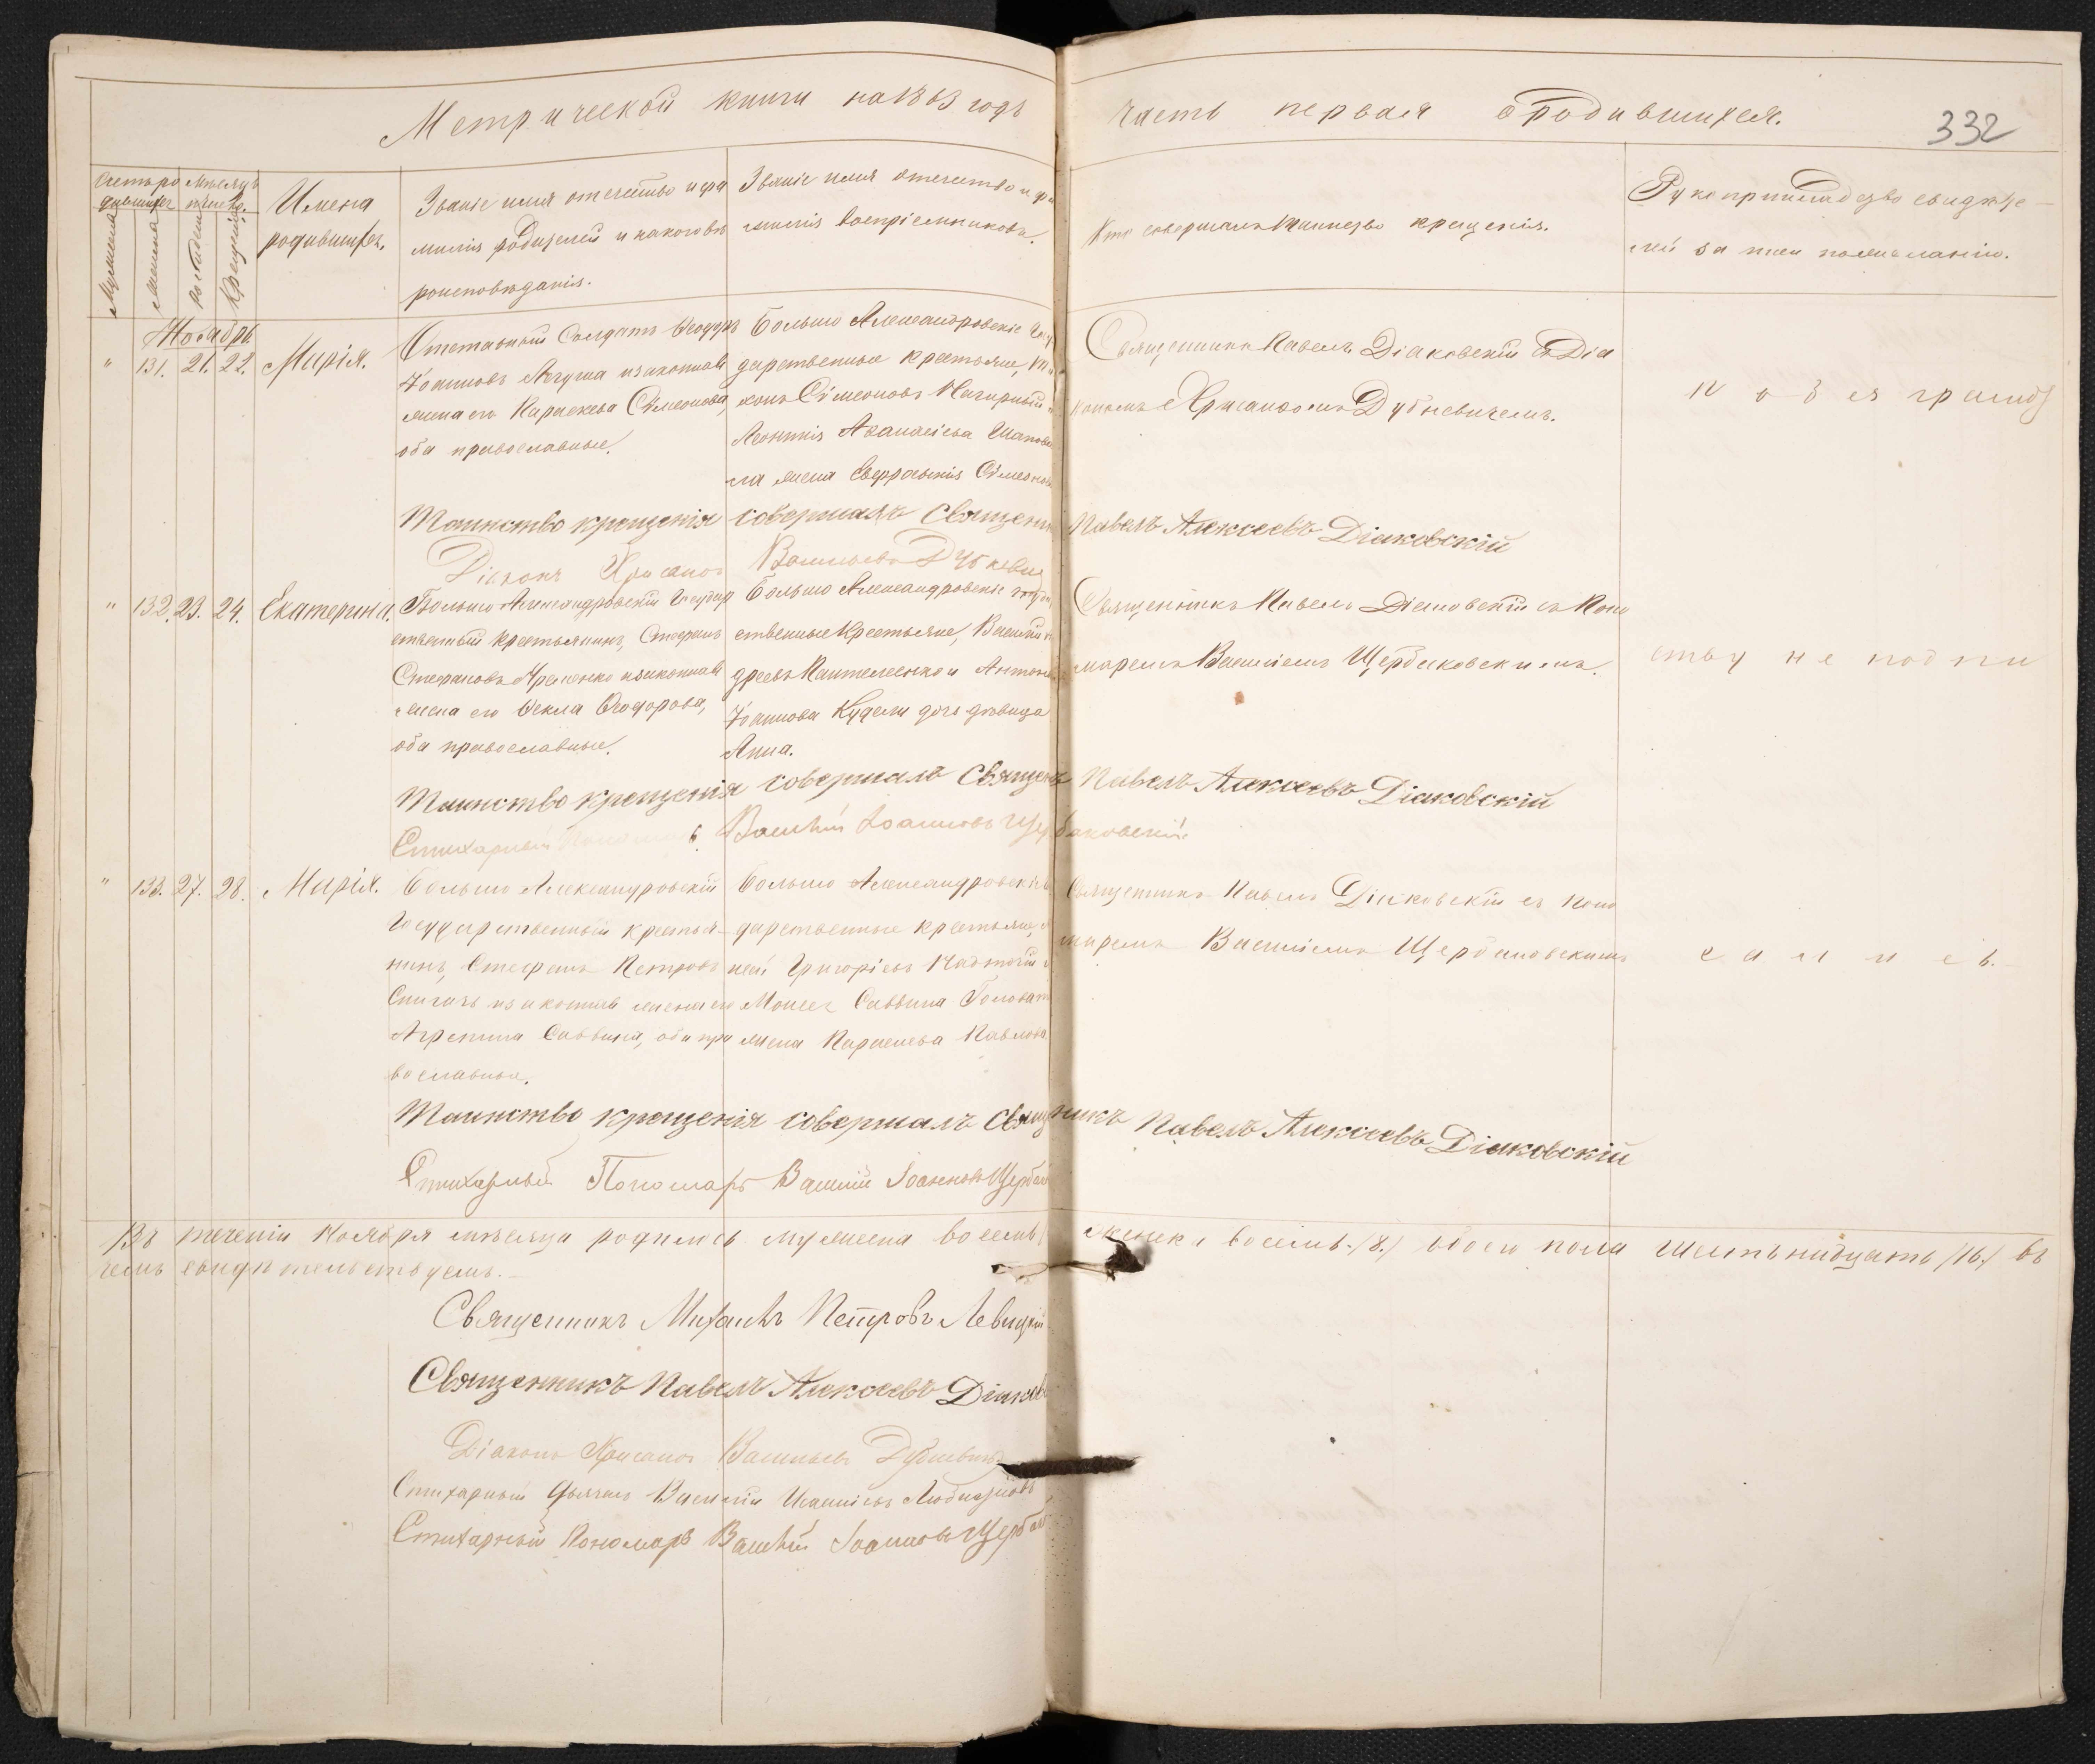 Метрической книги на 1863 годъ
часть первая о родившихся.
332
Счетъ ро
дившихся
Мужеска
Женска
Мѣсяцъ
и число.
рожденія
крещенія
Имена
родившихся.
Званіе имя отечество и фа
милія родителей и какого вѣ
роисповѣданія.
Званіе имя отечество и фа
милія воспріемниковъ.
Кто совершалъ таинство крещенія.
Рукоприкладство свидѣте
лей записи по желанію.
Ноябрь
" 131. 21. 22. Марія.
Отставный Солдатъ Ѳеодоръ
Іоанновъ изаконная
жена его Параскева Сѵмеонова,
оба православные.
Большо Александровскіе Госу
дарственные крестьяне,
Сѵмеоновъ Нагирный
Леонтія Аѳанасіева
ла жена Евфросинія Сѵмеонова
Священникъ Павелъ Діаковскій съ Діа
кономъ Хрисанфомъ Дубневичемъ.
по безграмот
Таинство крещенія совершалъ Священникъ Павелъ Алексеевъ Діаковскій
Діаконъ Хрисанфъ Васильевъ Дубневичъ
" 132. 23. 24. Екатерина.
Большо Александровскій Государ
ственный крестьянинъ, Стефанъ
Стефановъ Яременко изаконная
жена его Ѳекла Ѳеодорова,
оба православные.
Большо Александровскіе госуда
ственные Крестьяне, Василій
Пантелеенко и Антона
Іоаннова Кудели дочь дѣвица
Анна.
Священникъ Павелъ Діаковскій съ Поно
маремъ Василіемъ Щербаковскимъ.
ству не подпи
Таинство крещенія совершалъ Священникъ Павелъ Алексеевъ Діаковскій
Стихарный Пономарь Василій Іоанновъ Щербаковскій
" 133. 27. 28. Марія.
Большо Александровскій
Государственный крестья
нинъ, Стефанъ Петровъ
Спичакъ изаконная жена его
Агрепина Саввина, оба пра
вославные.
Большо Александровскіе
дарственные крестьяне,
Григоріевъ
Моисея Саввина Головат
жена Параскева Павлова.
Священникъ Павелъ Діаковскій съ Поно
маремъ Василіемъ Щербаковскимъ
сались.
Таинство крещенія совершалъ Священникъ Павелъ Алексеевъ Діаковскій
Стихарный Пономарь Василій Іоанновъ Щербак
Въ теченіи Ноября мѣсяца родилось мужеска восемь женска восемь. /8./ обоего пола шестьнадцать /16./ въ
чемъ свидѣтельствуемъ.
Священникъ Михаилъ Петровъ Левицкій
Священникъ Павелъ Алексеевъ Діаков
Діаконъ Хрисанфъ Васильевъ Дубневичъ
Стихарный Дьячекъ Василій
Стихарный Пономарь Василій Іоанновъ Щербак